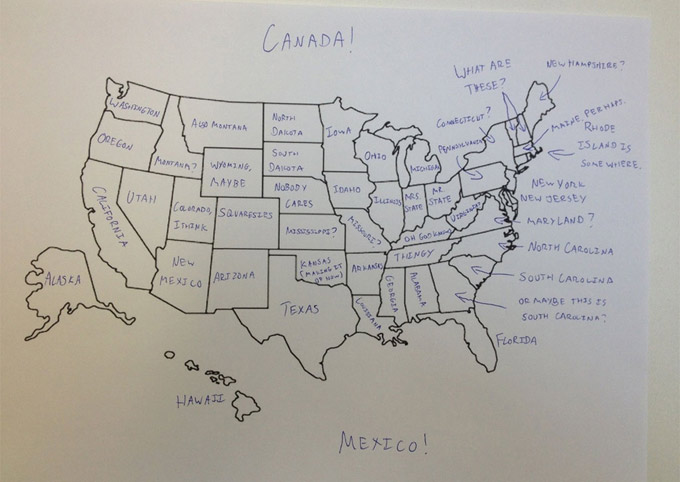 CANADA!
WHAT ARE
THESE?
NEW HAMPSHIRE?
WASHINGTON
ALSO MONTANA
NORTH
DAKOTA
IOWA
CONNECTICUT?
MAINE PERHAPS.
RHODE
ISLAND IS
SOMEWHERE.
OREGON
MONTANA?
WYOMING,
MAYBE
SOUTH
DAKOTA
OHIO
MICHIGAN
PENNSYLVANIA
NEW YORK
NEW JERSEY
CALIFORNIA
UTAH
COLORADO,
I THINK
SQUARESIES
NOBODY
CARES
IDAHO
ILLINOIS
MRS.
STATE
MR.
STATE
VIRGINIA?
MARYLAND?
MISSISSIPPI?
MISSOURI?
OH GOD KNOWS
NORTH CAROLINA
NEW
MEXICO
ARIZONA
KANSAS
(MAKING IT
UP NOW)
ARKANSAS
THINGY
SOUTH CAROLINA
ALASKA
TEXAS
LOUISIANA
GEORGIA
ALABAMA
OR MAYBE THIS IS
SOUTH CAROLINA?
FLORIDA
HAWAII
MEXICO!